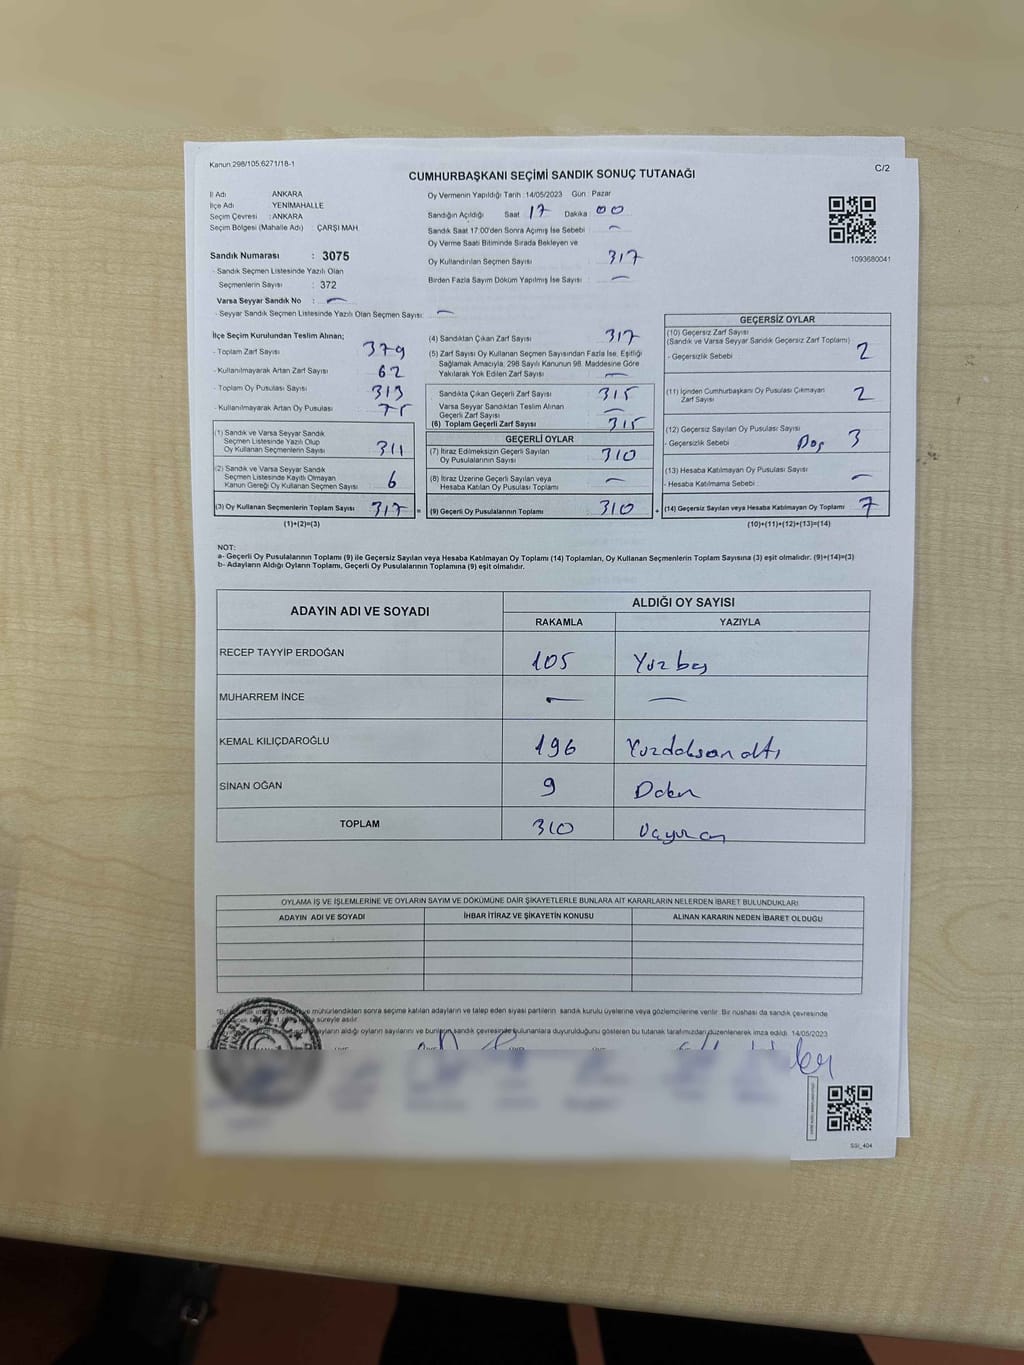 Kanun 298/105,6271/18-1
C/2
CUMHURBAŞKANI SEÇİMİ SANDIK SONUÇ TUTANAĞI
İl Adı ANKARA
İlçe Adı YENİMAHALLE
Seçim Çevresi : ANKARA
Seçim Bölgesi (Mahalle Adı) : ÇARŞI MAH.
Sandık Numarası : 3075
- Sandık Seçmen Listesinde Yazılı Olan
Seçmenlerin Sayısı : 372
Varsa Seyyar Sandık No : —
- Seyyar Sandık Seçmen Listesinde Yazılı Olan Seçmen Sayısı: —
Oy Vermenin Yapıldığı Tarih : 14/05/2023 Gün : Pazar
Sandığın Açıldığı Saat 17 Dakika 00
Sandık Saat 17.00'den Sonra Açımış İse Sebebi —
Oy Verme Saati Bitiminde Sırada Bekleyen ve
Oy Kullandırılan Seçmen Sayısı 317
Birden Fazla Sayım Döküm Yapılmış İse Sayısı —
1093680041
İlçe Seçim Kurulundan Teslim Alınan;
- Toplam Zarf Sayısı 379
- Kullanılmayarak Artan Zarf Sayısı 62
- Toplam Oy Pusulası Sayısı 313
- Kullanılmayarak Artan Oy Pusulası 75
(1) Sandık ve Varsa Seyyar Sandık
Seçmen Listesinde Yazılı Olup
Oy Kullanan Seçmenlerin Sayısı 311
(2) Sandık ve Varsa Seyyar Sandık
Seçmen Listesinde Kayıtlı Olmayan
Kanun Gereği Oy Kullanan Seçmen Sayısı 6
(3) Oy Kullanan Seçmenlerin Toplam Sayısı 317
(1)+(2)=(3)
(4) Sandıktan Çıkan Zarf Sayısı 317
(5) Zarf Sayısı Oy Kullanan Seçmen Sayısından Fazla İse, Eşitliği
Sağlamak Amacıyla; 298 Sayılı Kanunun 98. Maddesine Göre
Yakılarak Yok Edilen Zarf Sayısı —
Sandıkta Çıkan Geçerli Zarf Sayısı 315
Varsa Seyyar Sandıktan Teslim Alınan
Geçerli Zarf Sayısı —
(6) Toplam Geçerli Zarf Sayısı 315
GEÇERLİ OYLAR
(7) İtiraz Edilmeksizin Geçerli Sayılan
Oy Pusulalarının Sayısı 310
(8) İtiraz Üzerine Geçerli Sayılan veya
Hesaba Katılan Oy Pusulası Toplamı —
= (9) Geçerli Oy Pusulalarının Toplamı 310
GEÇERSİZ OYLAR
(10) Geçersiz Zarf Sayısı
(Sandık ve Varsa Seyyar Sandık Geçersiz Zarf Toplamı)
- Geçersizlik Sebebi 2
(11) İçinden Cumhurbaşkanı Oy Pusulası Çıkmayan
Zarf Sayısı 2
(12) Geçersiz Sayılan Oy Pusulası Sayısı
- Geçersizlik Sebebi 3
(13) Hesaba Katılmayan Oy Pusulası Sayısı
- Hesaba Katılmama Sebebi : —
+ (14) Geçersiz Sayılan veya Hesaba Katılmayan Oy Toplamı 7
(10)+(11)+(12)+(13)=(14)
NOT:
a- Geçerli Oy Pusulalarının Toplamı (9) ile Geçersiz Sayılan veya Hesaba Katılmayan Oy Toplamı (14) Toplamları, Oy Kullanan Seçmenlerin Toplam Sayısına (3) eşit olmalıdır. (9)+(14)=(3)
b- Adayların Aldığı Oyların Toplamı, Geçerli Oy Pusulalarının Toplamına (9) eşit olmalıdır.
ADAYIN ADI VE SOYADI ALDIĞI OY SAYISI
RAKAMLA YAZIYLA
RECEP TAYYİP ERDOĞAN 105 Yüzbeş
MUHARREM İNCE — —
KEMAL KILIÇDAROĞLU 196 Yüzdoksanaltı
SİNAN OĞAN 9 Dokuz
TOPLAM 310 Üçyüzon
OYLAMA İŞ VE İŞLEMLERİNE VE OYLARIN SAYIM VE DÖKÜMÜNE DAİR ŞİKAYETLERLE BUNLARA AİT KARARLARIN NELERDEN İBARET BULUNDUKLARI
ADAYIN ADI VE SOYADI İHBAR İTİRAZ VE ŞİKAYETİN KONUSU ALINAN KARARIN NEDEN İBARET OLDUĞU
ve mühürlendikten sonra seçime katılan adayların ve talep eden siyasi partilerin sandık kurulu üyelerine veya gözlemcilerine verilir. Bir nüshası da sandık çevresinde
süreyle asılır.
adayların aldığı oyların sayılarını ve bunların sandık çevresinde bulunanlara duyurulduğunu gösteren bu tutanak tarafımızdan düzenlenerek imza edildi. 14/05/2023
SSİ_404